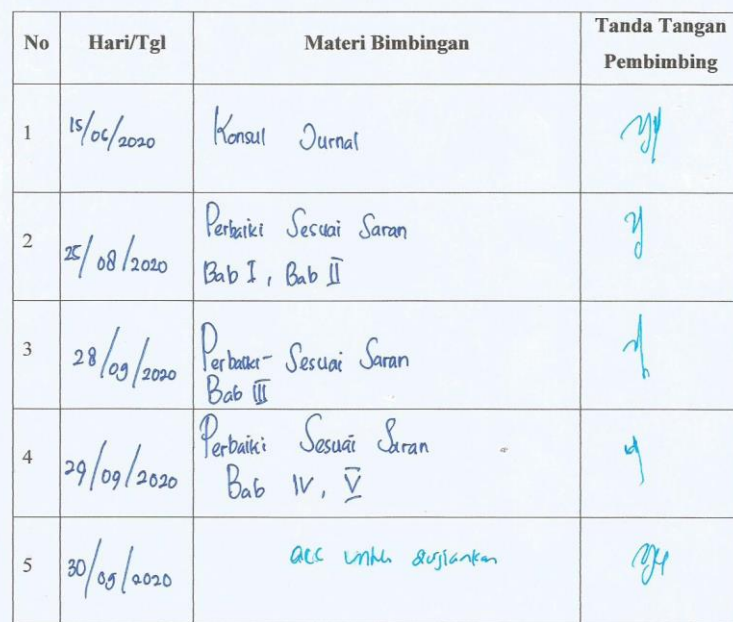 No Hari/Tgl Materi Bimbingan Tanda Tangan Pembimbing
1 15/06/2020 Konsul Jurnal
2 25/08/2020 Perbaiki Sesuai Saran
Bab I, Bab II
3 28/09/2020 Perbaiki Sesuai Saran
Bab III
4 29/09/2020 Perbaiki Sesuai Saran
Bab IV, V
5 30/09/2020 acc untuk diujiankan